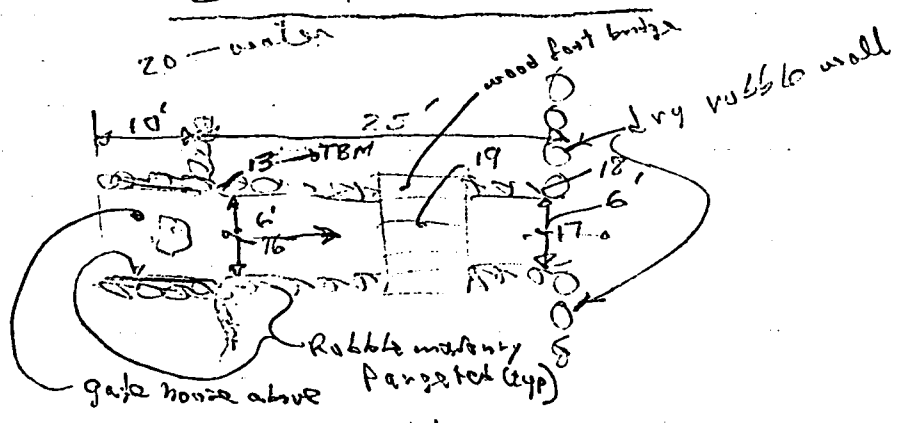 20 — water
wood foot bridge
dry rubble wall
10'
25'
13 → TBM
19
18
6'
6'
16
17
Rubble masonry
Pargeted (typ)
gate house above